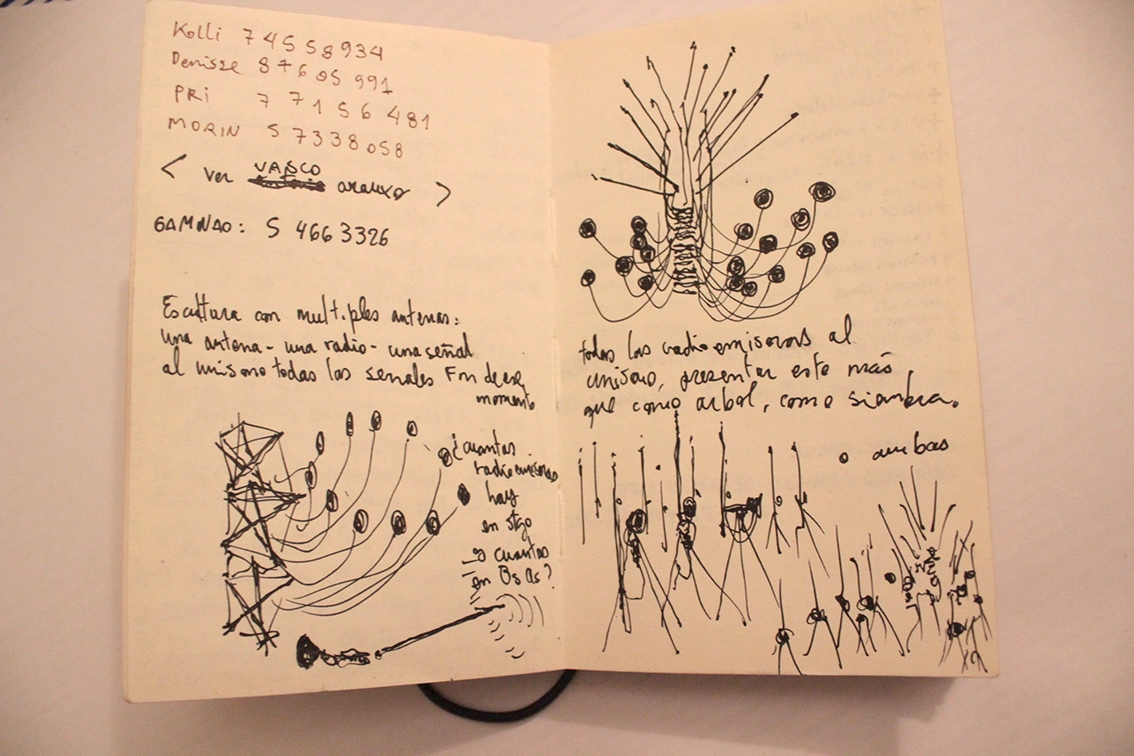 Kolli 74558934
Denisse 87605991
PRI 77156481
MORIN 57338058
< ver VASCO araujo >
GAMNAO: 5 4663326
Escultura con multiples antenas:
una antena - una radio - una señal
al unisono todas las señales
momento
¿cuantas
radioemisoras
hay
en stgo
y cuantas
en Bs As?
todas las radioemisoras al
unisono, presentar esto más
que como arbol, como siembra.
o ambas